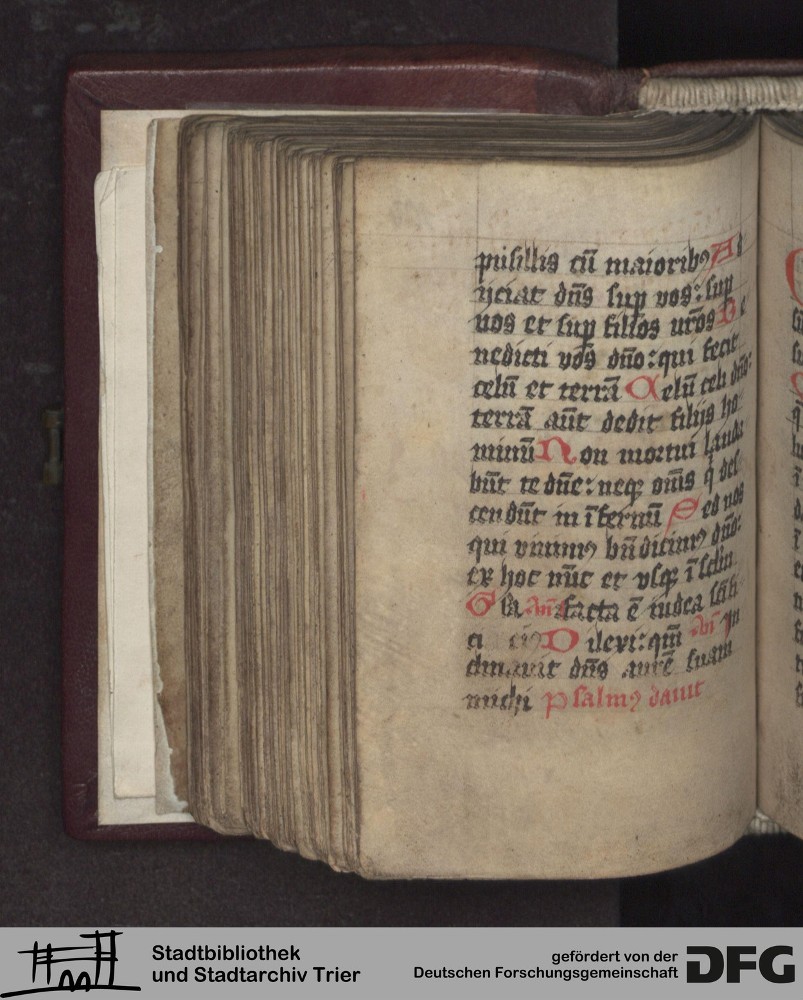 pusillis cū maioribꝰ Ad
ijciat dn̄s sup vos : sup
uos et sup filios ur̄os Be
nedicti vos dn̄o : qui fecit
celū et terrā Celū celi dn̄o :
terrā aūt dedit filijs ho
minū Non mortui lauda
būt te dn̄e : neqꝫ om̄s q̄ des
cendūt in īfernū Sed nos
qui viuimꝰ bn̄dicimꝰ dn̄o :
ex hoc nūc et vsqꝫ ī sclm
Gl̄a an̄ facta ē iudea sc̄ifi
Dilexi : qm̄ an̄ In
clinauit dn̄s aurē suam
michi Psalmꝰ dauit
Stadtbibliothek
und Stadtarchiv Trier
gefördert von der
Deutschen Forschungsgemeinschaft
DFG